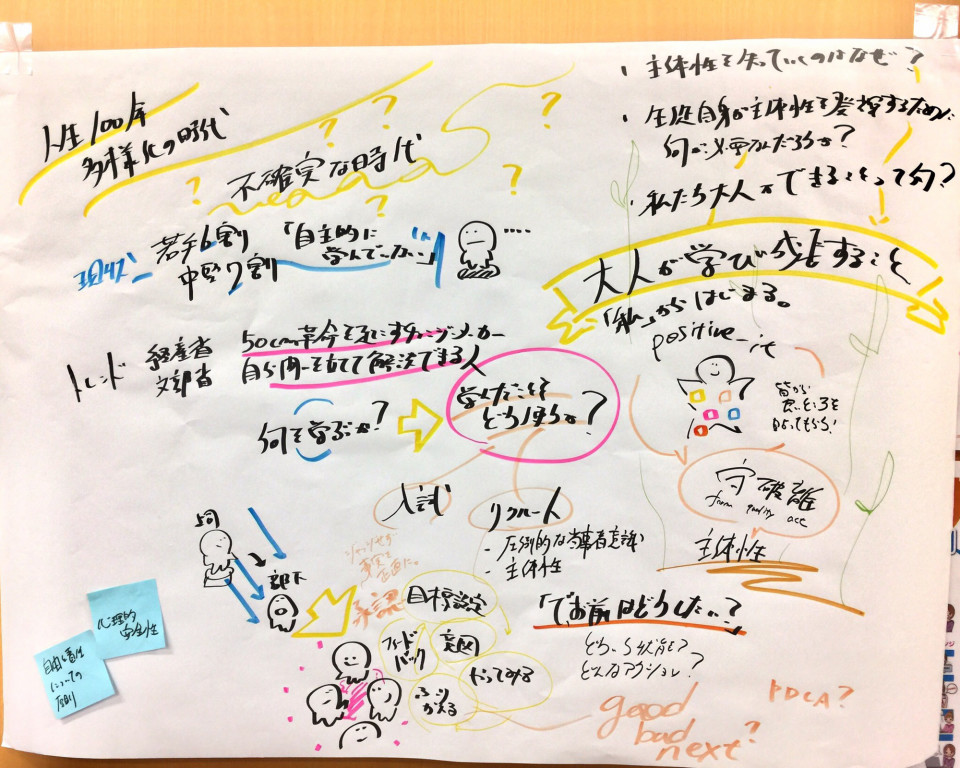 人生100年
多様化の時代
不確実な時代
? ? ? ? ? ?
・主体性を失っていくのはなぜ?
・生徒自身が主体性を発揮するために
何が必要なんだろうか?
・私たち大人ができることって何?
大人が学び成長すること
「私」からはじまる。
positive_it
若手6割
中堅7割
「自主的に
学んでいない」
....
トレンド
経産省
文部省
50cm革命を起こすチェンジメーカー
自ら問いを立てて解決できる人
何を学ぶか?
学んだことを
どう使うか?
皆から
思うところを
貼ってもらう!
守破離
主体性
入試
リクルート
・圧倒的な当事者意識
・主体性
部下
承認
目標設定
フィード
バック
意図
やってみる
ふり
かえる
「でお前はどうしたい?」
どういう状態に?
どんなアクション?
PDCA?
good
bad
next?
心理的
安全性
自由と責任
についての
原則